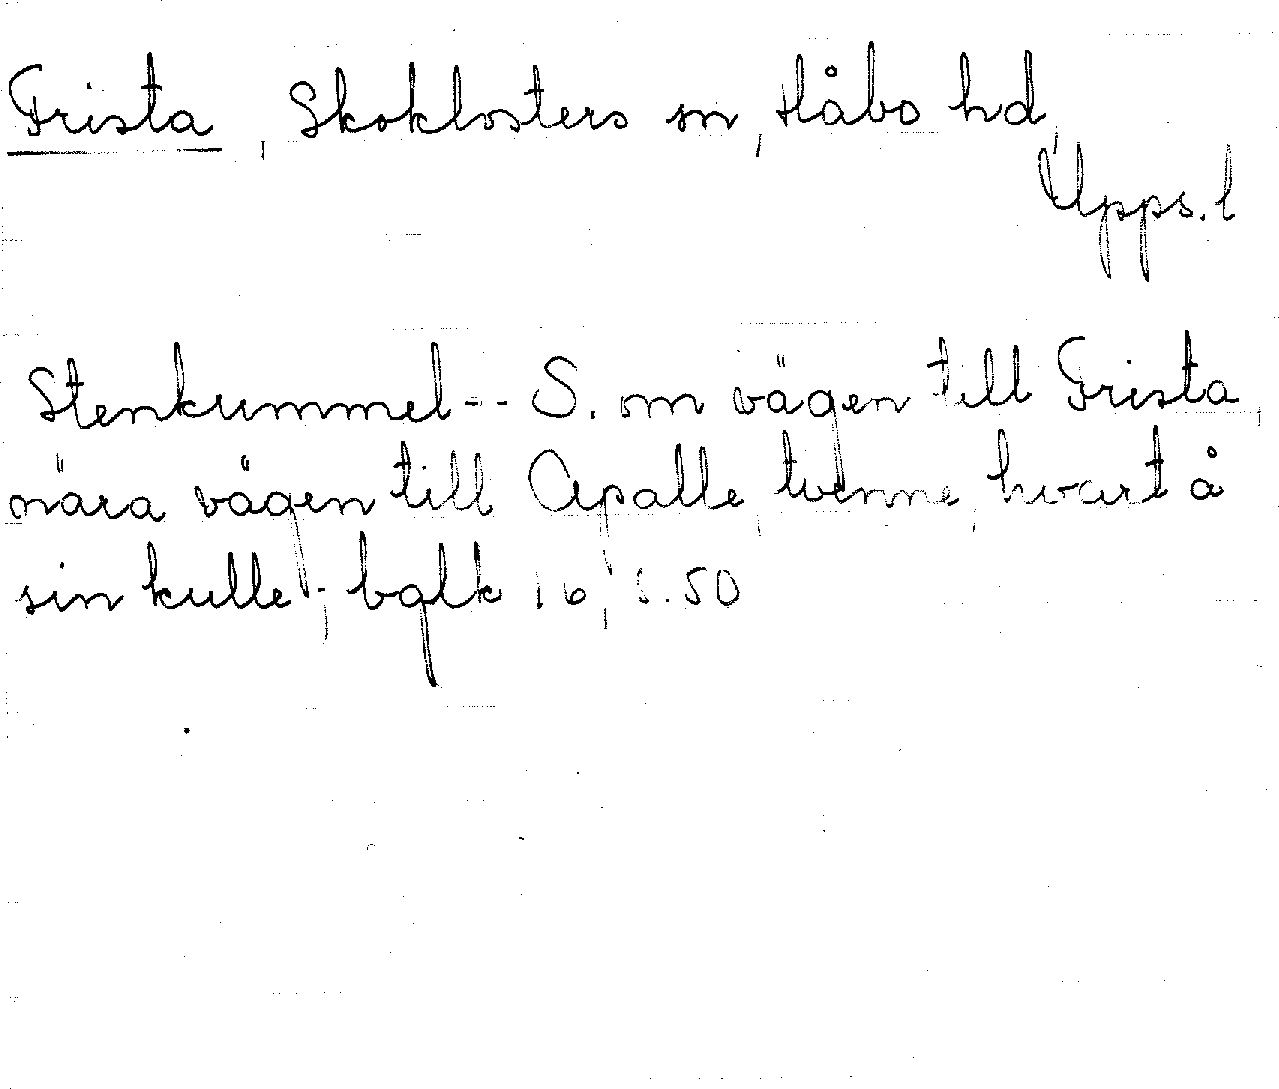 Frista, Skoklosters sn, Håbo hd,
Upps. l
Stenkummel -- S. om vägen till Frista,
nära vägen till Apalle, tvenne, hvart å
sin kulle; bqlk 16, s. 50